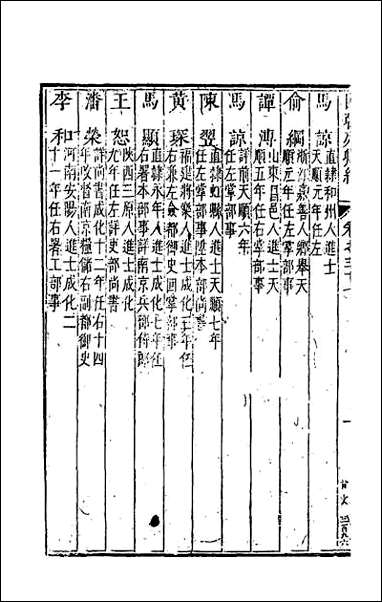 馬諒
直隸和州人進士
天順元年任左
俞綱
浙江嘉善人鄉舉天
順元年任左掌部事
譚溥
山東昌邑人進士天
順五年任右掌部事
馬諒
詳前天順六年
任左掌部事
陳翌
直隸虹縣人進士天順七年
任左掌部事陞本部尚書
黃琛
福建將樂人進士成化三年任
右兼左僉都御史回掌部事
馬顯
直隸永年人進士成化七年任
右署本部事詳南京兵部侍郎
王恕
陝西三原人進士成化
九年任左詳吏部尚書
潘榮
詳尚書成化十二年任右十四
年改督南京糧儲右副都御史
李和
河南安陽人進士成化二
十一年任右署工部事